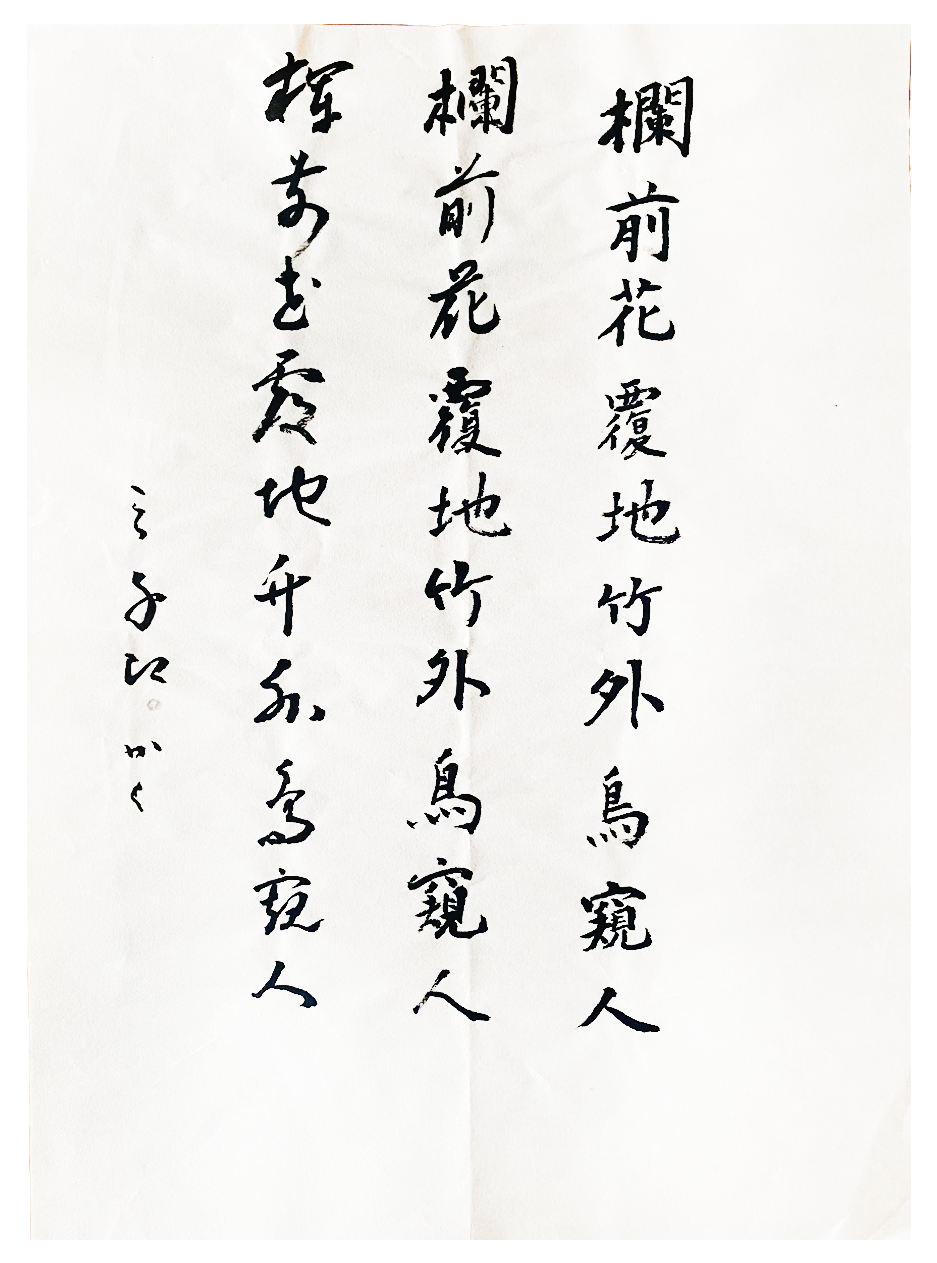 欄前花覆地竹外鳥窺人
欄前花覆地竹外鳥窺人
欄前花覆地竹外鳥窺人
かく